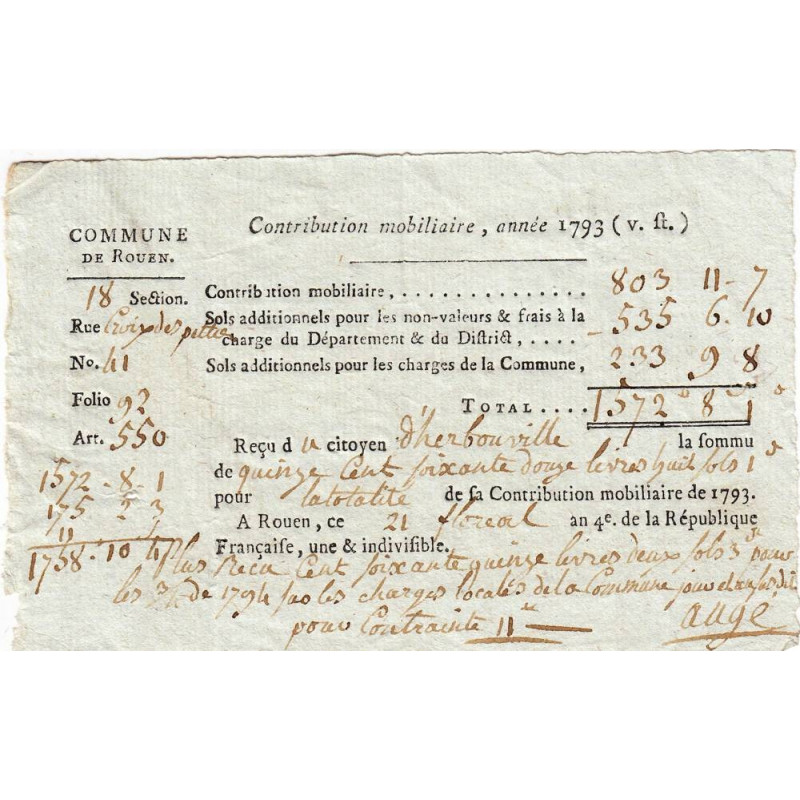 Contribution mobiliaire, année 1793 (v. ſt.)
COMMUNE
DE ROUEN.
18 Section.
Rue Croix des
No. 41
Folio 92
Art. 550
1572 - 8 - 1
175 2 3
11
1758 - 10 4
Contribution mobiliaire, . . . . . . . . . . . . . . 803 11 - 7
Sols additionnels pour les non-valeurs & frais à la
charge du Département & du District, . . . . 535 6. 10
Sols additionnels pour les charges de la Commune, 233 9 8
TOTAL . . . . 1572 8 1
Reçu du citoyen d'herbouville la ſomme
de quinze Cent ſoixante douze livres huit ſols 1 d
pour la totalité de ſa Contribution mobiliaire de 1793.
A Rouen, ce 21 floreal an 4e. de la République
Française, une & indiviſible.
Plus Recu Cent ſoixante quinze livres deux ſols 3 pour
les de 1794 les charges locales de la Commune jour et an ſusdit
pour Contrainte 11
augé